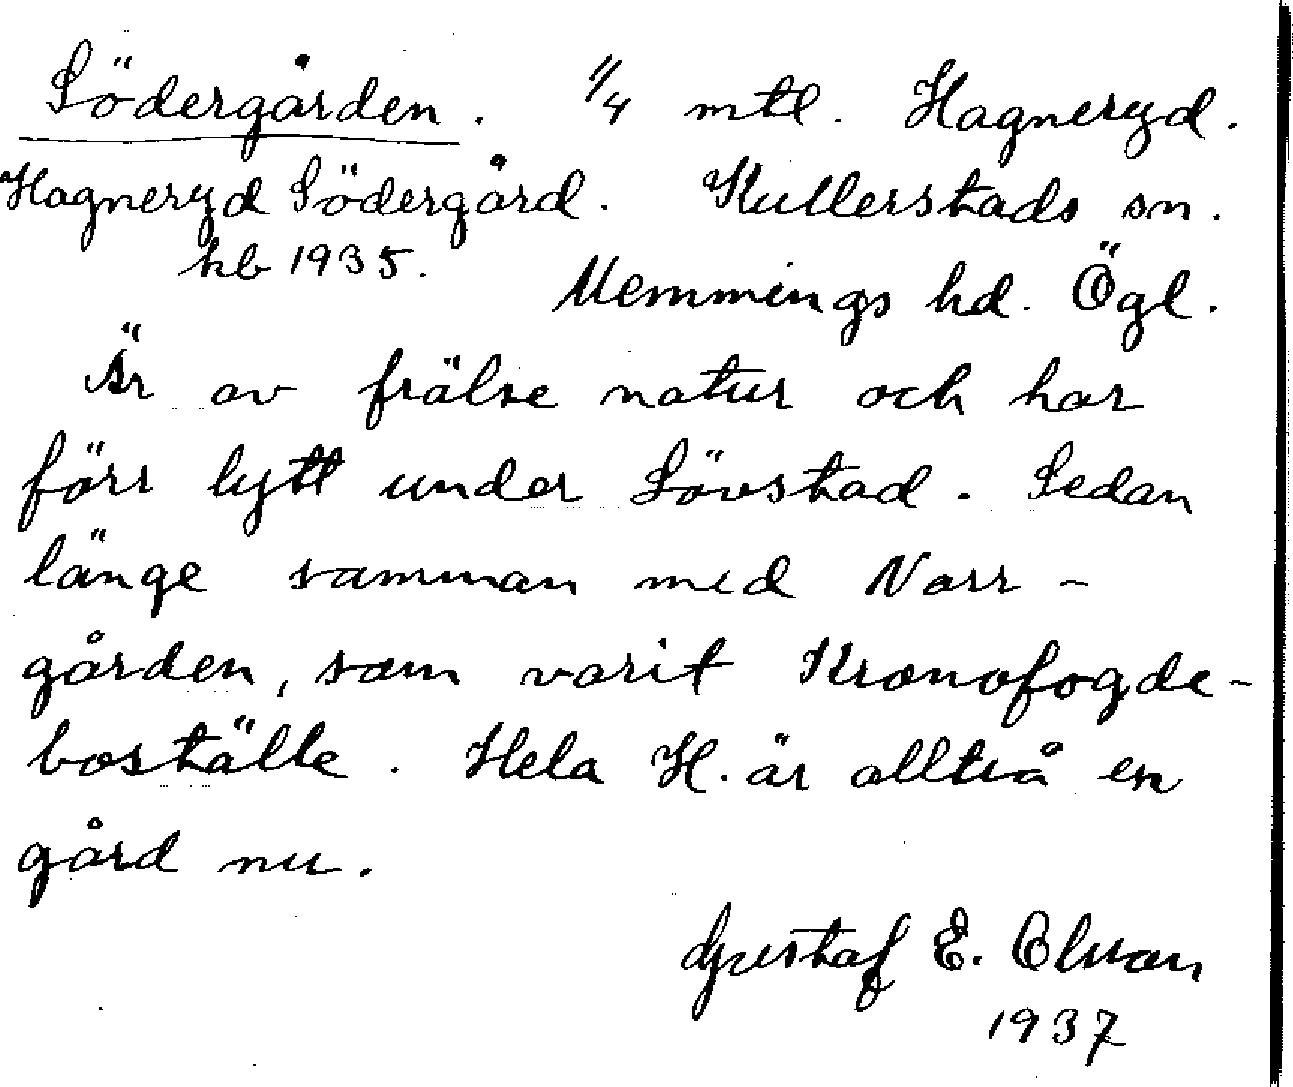 Södergården. 1/4 mtl. Hagneryd.
Hagneryd Södergård. Kullerstads sn.
kb 1935. Memmings hd. Ögl.
Är av frälse natur och har
förr lytt under Lövstad. Sedan
länge samman med Norr-
gården, som varit Kronofogde-
boställe. Hela H. är alltså en
gård nu.
Gustaf E. Olson
1937